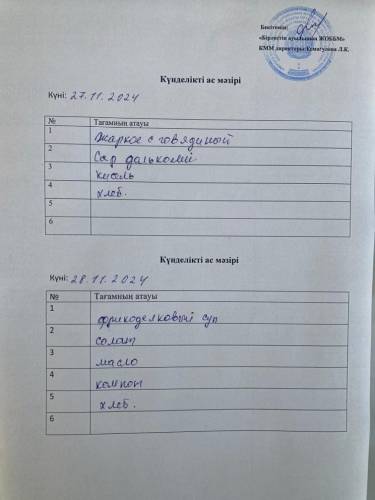 Бекітемін:
«Бірлестік ауылының ЖОББМ»
КММ директоры:Кемагулова Л.К.
Күнделікті ас мәзірі
Күні: 27.11.2024
№ Тағамның атауы
1 Жаркое с говядиной
2 Сыр
3 Кисель
4 хлеб.
5
6
Күнделікті ас мәзірі
Күні: 28.11.2024
№ Тағамның атауы
1 фрикаделковый суп
2 салат
3 масло
4 компот
5 хлеб.
6